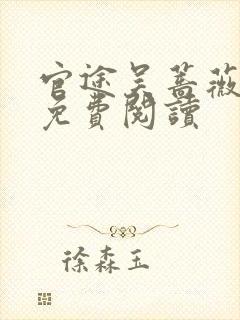 官途吳薔薇
免費閱讀
徐森玉